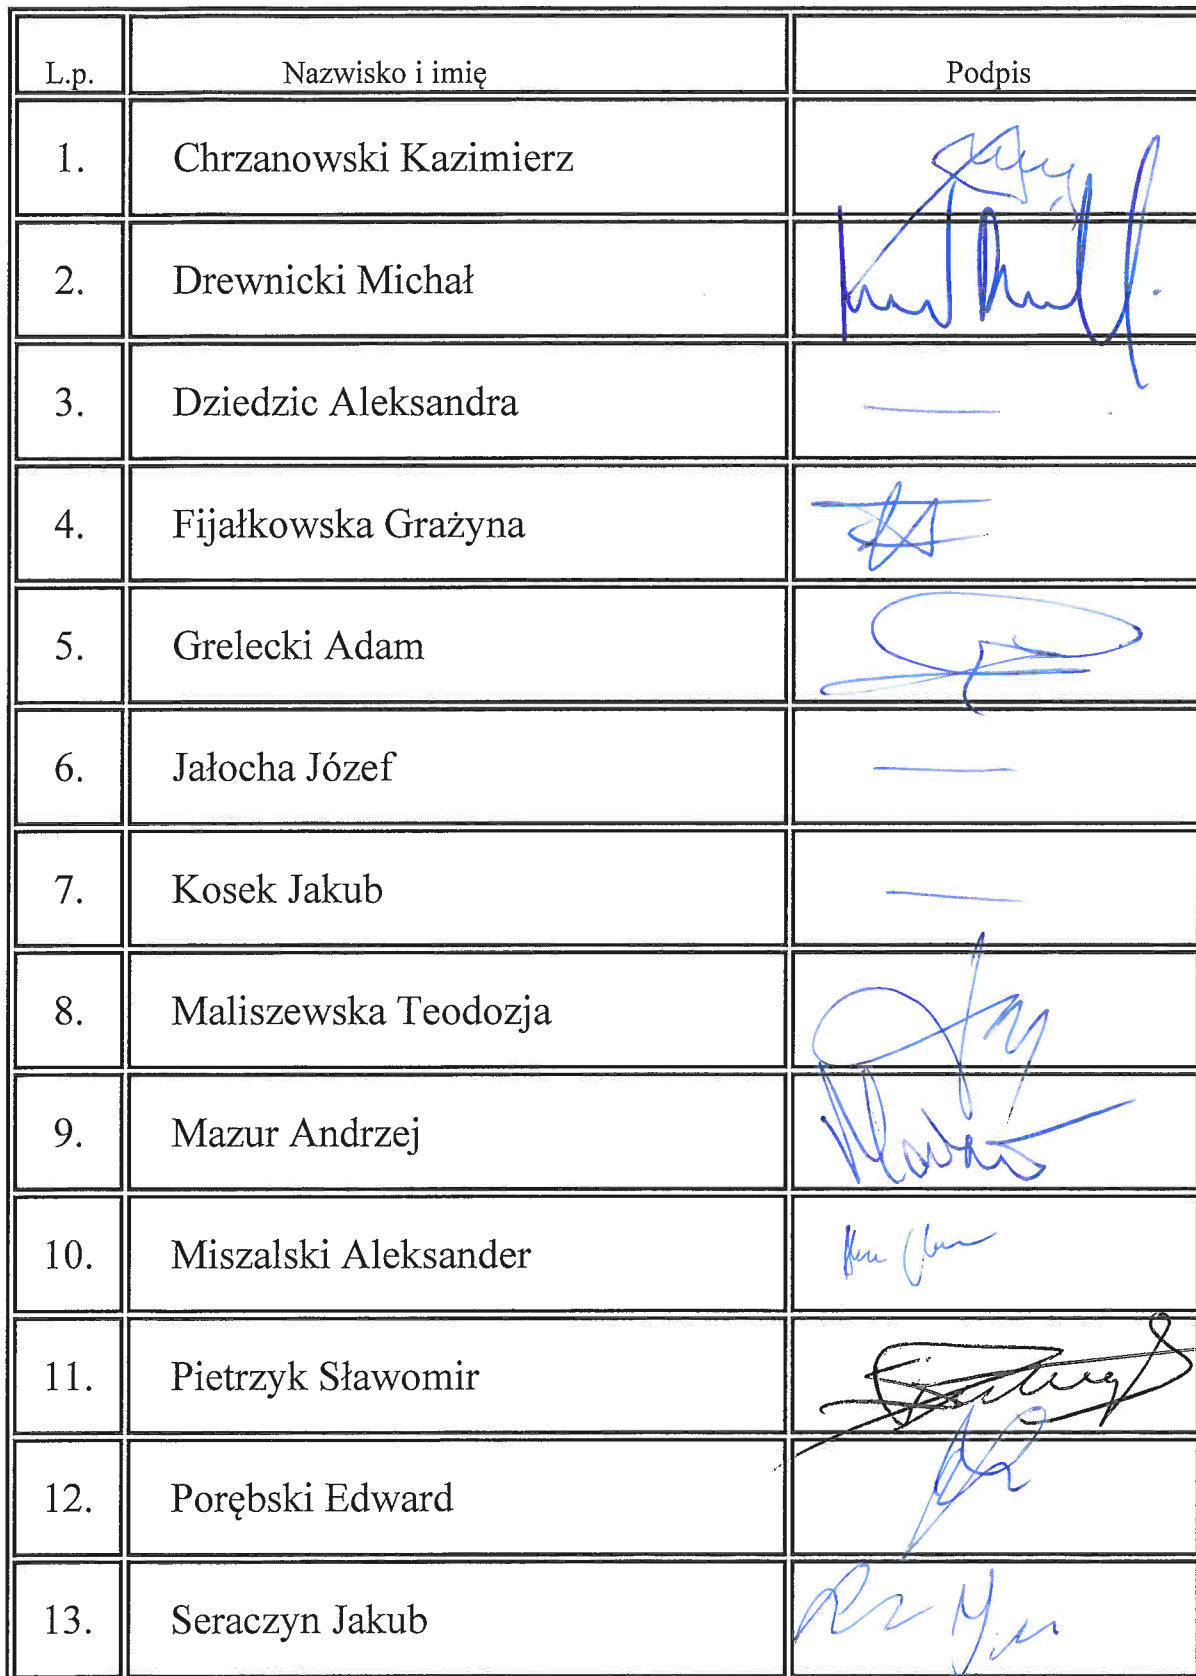 L.p. Nazwisko i imię Podpis
1. Chrzanowski Kazimierz
2. Drewnicki Michał
3. Dziedzic Aleksandra —
4. Fijałkowska Grażyna
5. Grelecki Adam
6. Jałocha Józef —
7. Kosek Jakub —
8. Maliszewska Teodozja
9. Mazur Andrzej
10. Miszalski Aleksander
11. Pietrzyk Sławomir
12. Porębski Edward
13. Seraczyn Jakub